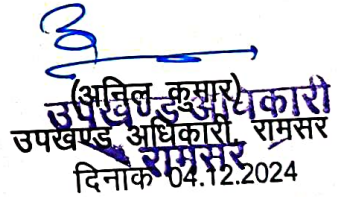 (अनिल कुमार)
उपखण्ड अधिकारी
उपखण्ड अधिकारी, रामसर
रामसर
दिनांक 04.12.2024